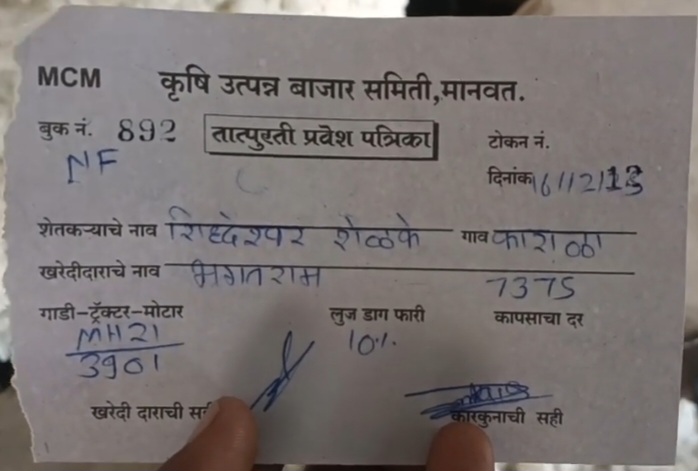 MCM कृषि उत्पन्न बाजार समिती,मानवत.
बुक नं. 892 तात्पुरती प्रवेश पत्रिका टोकन नं.
NF
दिनांक 16/12/
शेतकऱ्याचे नाव सिध्देश्वर शेळके गाव काराळा
खरेदीदाराचे नाव भगतराम
7375
गाडी-ट्रॅक्टर-मोटार लुज डाग फारी कापसाचा दर
MH21 10%
3901
खरेदी दाराची कारकुनाची सही